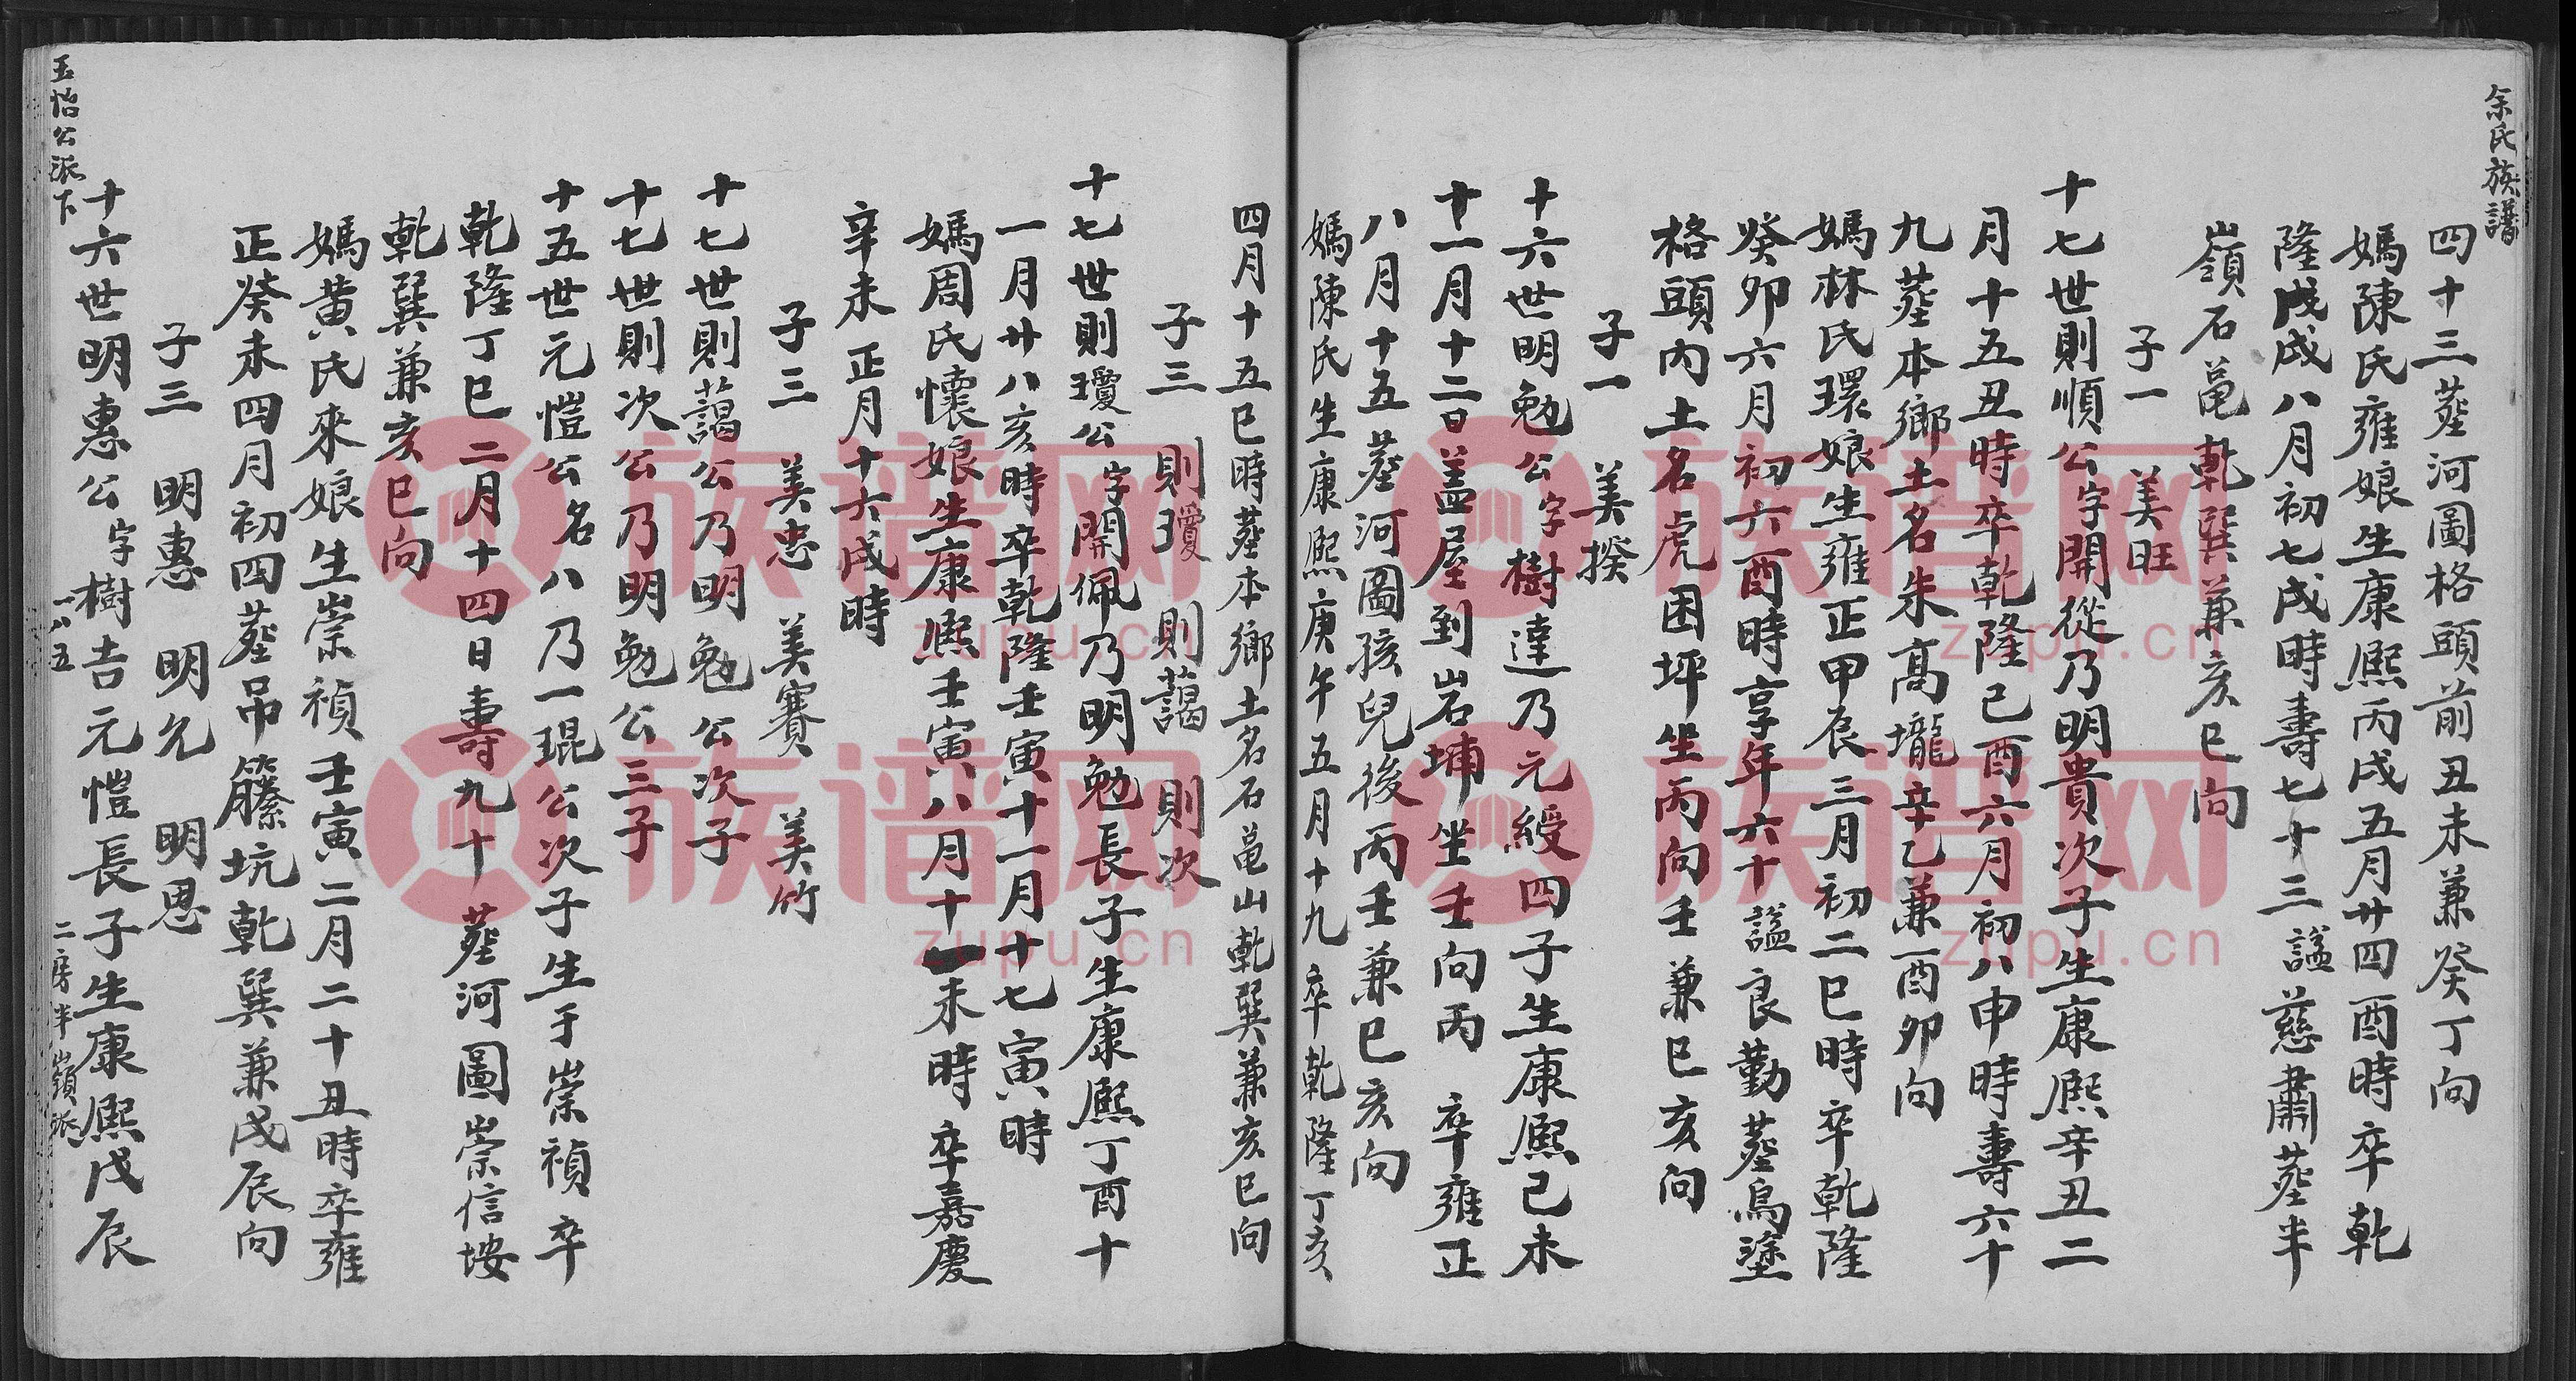 余氏族譜
四十三葬河圖格頭前丑未兼癸丁向
媽陳氏雍娘生康熙丙戌五月廿四酉時卒乾
隆戊戌八月初七戌時壽七十三謚慈肅葬半
嶺石黽乾巽兼亥巳向
子一 美旺
十七世則順公字開從乃明貴次子生康熙辛丑二
月十五丑時卒乾隆己酉六月初八申時壽六十
九葬本鄉土名朱高壠辛乙兼酉卯向
媽林氏環娘生雍正甲辰三月初二巳時卒乾隆
癸卯六月初六酉時享年六十謚良勤葬烏塗
格頭內土名虎困坪坐丙向壬兼巳亥向
子一 美揆
十六世明勉公字樹達乃元綬四子生康熙己未
十一月十二日盖屋到岩埔坐壬向丙 卒雍正
八月十五葬河圖孩兒後丙壬兼巳亥向
媽陳氏生康熙庚午五月十九卒乾隆丁亥
四月十五巳時葬本鄉土名石黽山乾巽兼亥巳向
子三 則瓊 則藹 則次
十七世則瓊公字開佩乃明勉長子生康熙丁酉十
一月廿八亥時卒乾隆壬寅十一月十七寅時
媽周氏懷娘生康熙壬寅八月十一未時卒嘉慶
辛未正月十六戌時
子三 美忠 美賽 美竹
十七世則藹公乃明勉公次子
十七世則次公乃明勉公三子
十五世元愷公名八乃一琨公次子生于崇禎卒
乾隆丁巳二月十四日壽九十葬河圖崇信垵
乾巽兼亥巳向
媽黃氏來娘生崇禎壬寅二月二十丑時卒雍
正癸未四月初四葬吊籐坑乾巽兼戌辰向
子三 明惠 明允 明恩
十六世明惠公字樹吉元愷長子生康熙戊辰
玉怡公派下 一八五 二房半嶺派
族谱网
zupu.cn
族谱网
zupu.cn
族谱网
zupu.cn
族谱网
zupu.cn